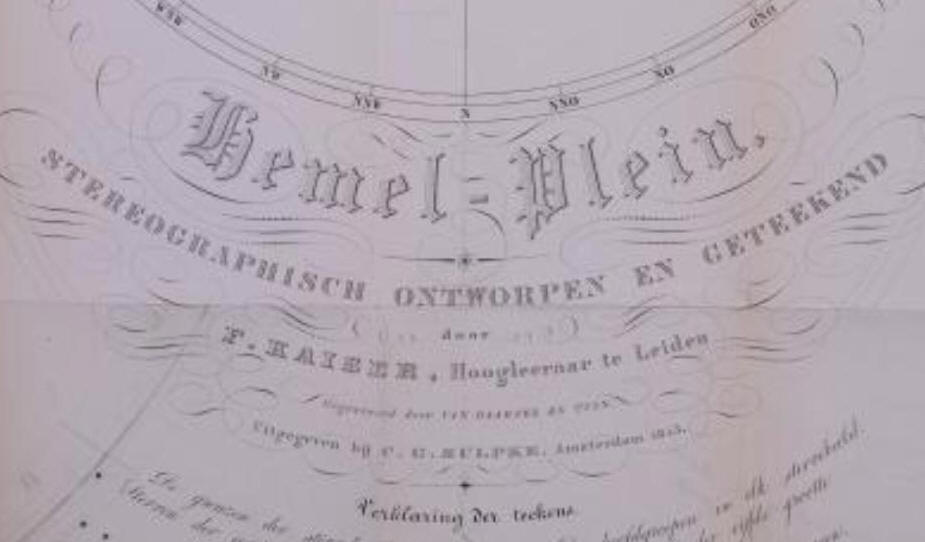 WNW NW NNW N NNO NO ONO
Hemel=Plein,
STEREOGRAPHISCH ONTWORPEN EN GETEEKEND
door
F. KAISER, Hoogleeraar te Leiden
Gegraveerd door VAN BAARSEL EN
Uitgegeven bij C. G. SULPKE, Amsterdam
Verklaring der teekens
De grenzen der in elk sterrebeeld.
Sterren der vijfde grootte